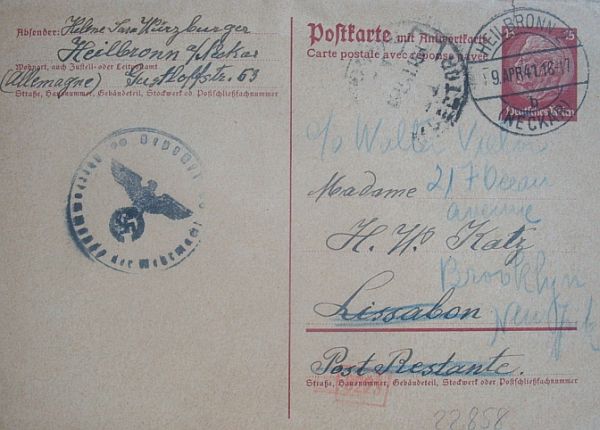 Absender: Helene Sara Würzburger
Heilbronn a/Neckar
Wohnort, auch Zustell- oder Leitpostamt
(Allemagne) Gustloffstr. 53
Straße, Hausnummer, Gebäudeteil, Stockwerk od. Postschließfachnummer
Postkarte mit Antwortkarte
Carte postale avec réponse payée
HEILBRONN
9.APR.41.16-17
b
(NECKAR)
25
25
Deutsches Reich
Oberkommando der Wehrmacht
c/o Walter
217 Ocean
Madame
avenue
H. W. Katz
Brooklyn
Lissabon
New York
Post Restante.
Straße, Hausnummer, Gebäudeteil, Stockwerk oder Postschließfachnummer
22.858